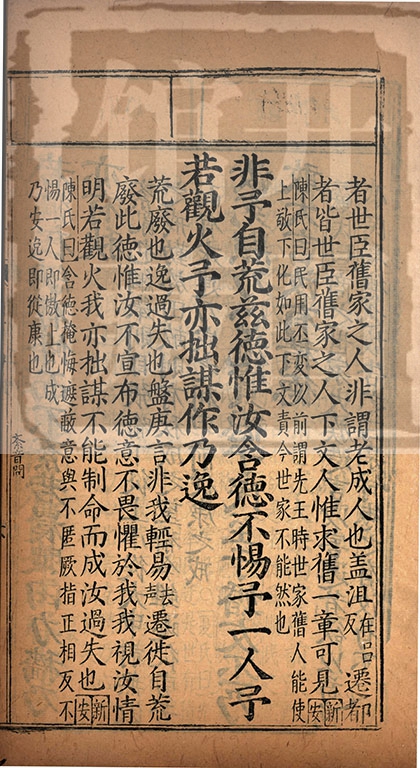 者世臣舊家之人非謂老成人也蓋沮在呂反遷都
者皆世臣舊家之人下文人惟求舊一章可見新安
陳氏曰民用丕変以前謂先王時世家舊人能使
上敬下化如此下文責今世家不能然也
非予自荒兹德惟汝含德不惕予一人予
若觀火予亦拙謀作乃逸
荒廢也逸過失也盤庚言非我輕易去声遷徙自荒
廢此德惟汝不宣布德意不畏懼於我我視汝情
明若觀火我亦拙謀不能制命而成汝過失也新安
陳氏曰含德掩悔遮蔽意與不匿厥指正相反不
惕一人即傲上也成
乃安逸即從康也